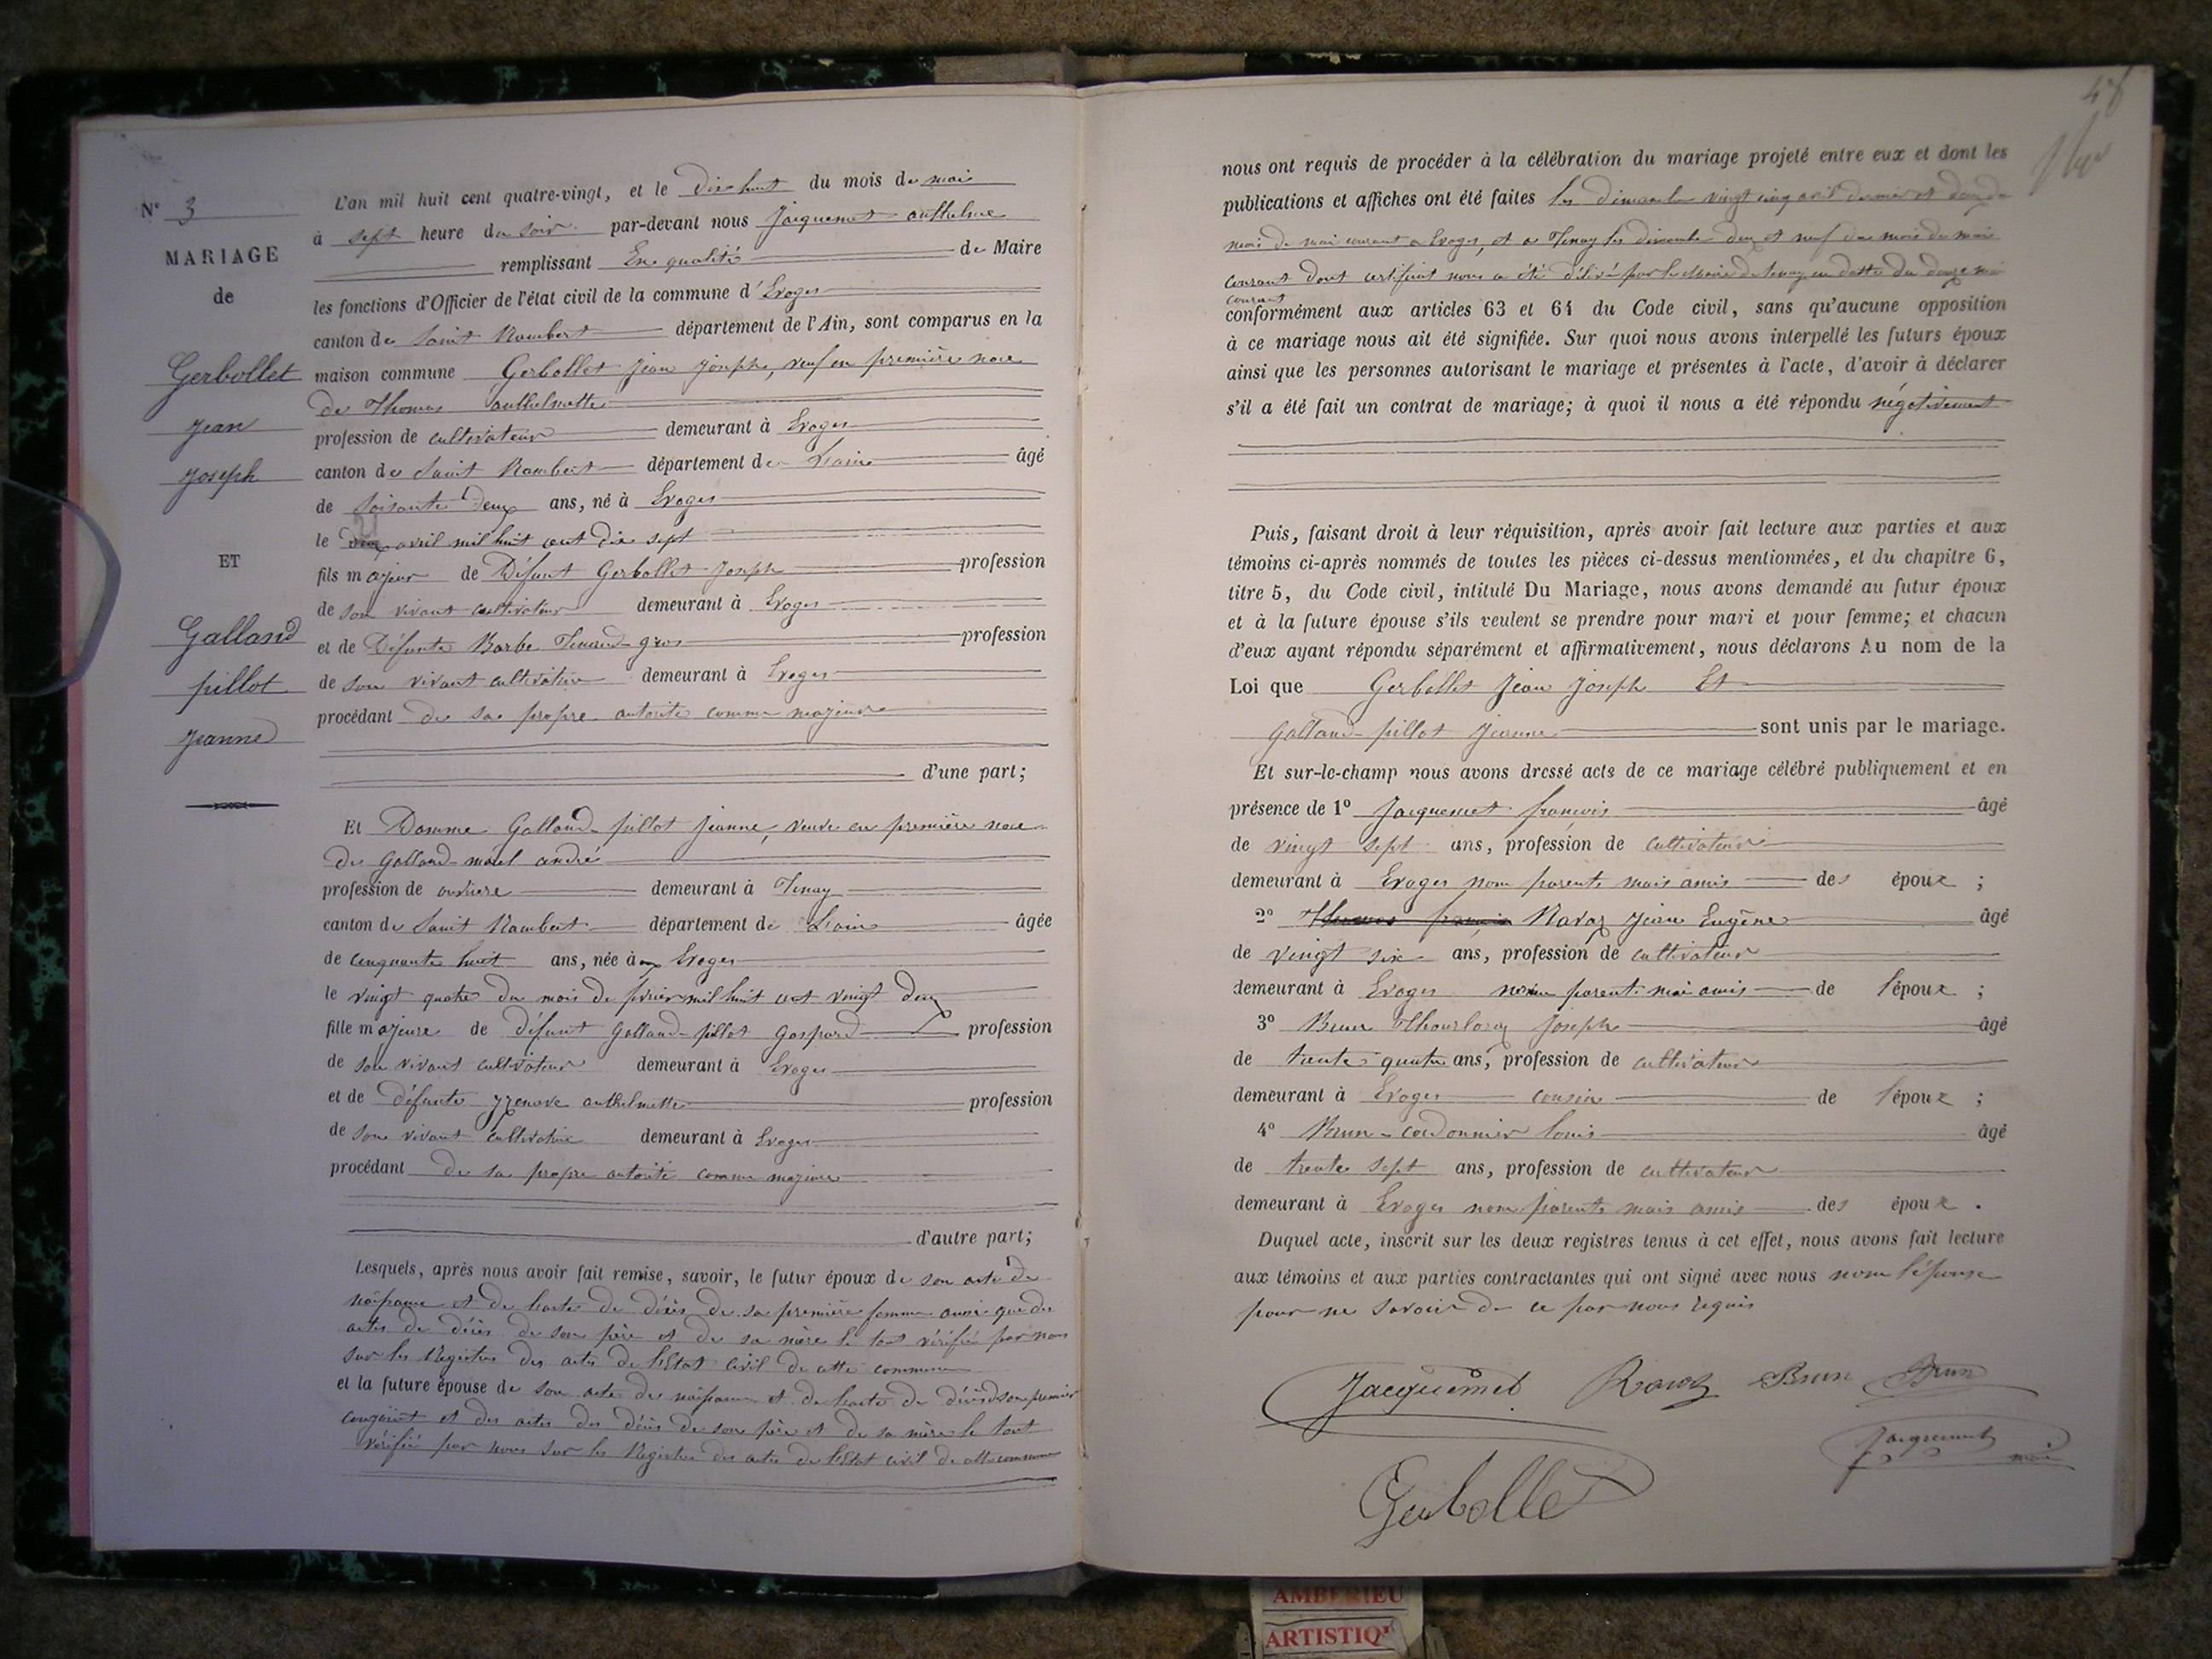 N° 3
MARIAGE
de
Gerbollet
Jean
Joseph
ET
Galland
pillot
Jeanne
L'an mil huit cent quatre-vingt, et le dix huit du mois de mai
à sept heure du soir par-devant nous Jacquemet anthelme
remplissant En qualité de Maire
les fonctions d'Officier de l'état civil de la commune d'Evoges
canton de Saint Rambert département de l'Ain, sont comparus en la
maison commune Gerbollet Jean Joseph, veuf en première noce
de Thomas anthelmette
profession de cultivateur demeurant à Evoges
canton de Saint Rambert département de L'ain âgé
de soisante deux ans, né à Evoges
le avril mil huit cent dix sept
fils majeur de Défunt Gerbollet Joseph profession
de son vivant cultivateur demeurant à Evoges
et de Défunte Barbe Tenand-gros profession
de son vivant cultivatrice demeurant à Evoges
procédant de sa propre autorité comme majeur
d'une part;
Et Damme Galland-pillot Jeanne, veuve en première noce
de Galland-maret andré
profession de ouvriere demeurant à Tenay
canton de Saint Rambert département de L'ain âgée
de cinquante huit ans, née à Evoges
le vingt quatre du mois de mil huit cent vingt deux
fille majeure de défunt Galland-pillot Gaspard profession
de son vivant cultivateur demeurant à Evoges
et de défunte anthelmette profession
de son vivant cultivatrice demeurant à Evoges
procédant de sa propre autorité comme majeure
d'autre part;
Lesquels, après nous avoir fait remise, savoir, le futur époux de son acte de
naissance et de l'acte de décès de sa première femme ainsi que des
actes de décès de son père et de sa mère le tout vérifié par nous
sur les Registres des actes de l'Etat civil de cette commune
et la future épouse de son acte de naissance et de l'acte de décès de son premier
conjoint et des actes des décès de son père et de sa mère le tout
vérifié par nous sur les Registres des actes de l'Etat civil de cette commune
48
nous ont requis de procéder à la célébration du mariage projeté entre eux et dont les
publications et affiches ont été faites les dimanches vingt cinq avril dernier et deux du
mois de mai courant a Evoges, et a Tenay les dimanche deux et neuf du mois de mai
courant dont certificat nous a été délivré par le Maire de tenay en datte du douze mai
courant
conformément aux articles 63 et 64 du Code civil, sans qu'aucune opposition
à ce mariage nous ait été signifiée. Sur quoi nous avons interpellé les futurs époux
ainsi que les personnes autorisant le mariage et présentes à l'acte, d'avoir à déclarer
s'il a été fait un contrat de mariage; à quoi il nous a été répondu négativement
Puis, faisant droit à leur réquisition, après avoir fait lecture aux parties et aux
témoins ci-après nommés de toutes les pièces ci-dessus mentionnées, et du chapitre 6,
titre 5, du Code civil, intitulé Du Mariage, nous avons demandé au futur époux
et à la future épouse s'ils veulent se prendre pour mari et pour femme; et chacun
d'eux ayant répondu séparément et affirmativement, nous déclarons Au nom de la
Loi que Gerbollet Jean Joseph Et
Galland-pillot Jeanne sont unis par le mariage.
Et sur-le-champ nous avons dressé acte de ce mariage célébré publiquement et en
présence de 1° Jacquemet françois âgé
de vingt sept ans, profession de cultivateur
demeurant à Evoges nom parents mais amis des époux ;
2° Ravaz Jean Eugène âgé
de vingt six ans, profession de cultivateur
demeurant à Evoges parent mai amis de l'époux ;
3° Brun Joseph âgé
de trente quatre ans, profession de cultivateur
demeurant à Evoges cousin de l'époux ;
4° Brun-cordonnier louis âgé
de trente sept ans, profession de cultivateur
demeurant à Evoges nom parents mais amis des époux .
Duquel acte, inscrit sur les deux registres tenus à cet effet, nous avons fait lecture
aux témoins et aux parties contractantes qui ont signé avec nous nom l'épouse
pour ne savoir de ce par nous requis
Jacquemet Ravaz Brun Brun
Jacquemet
Gerbollet
AMBERIEU
ARTISTIQ